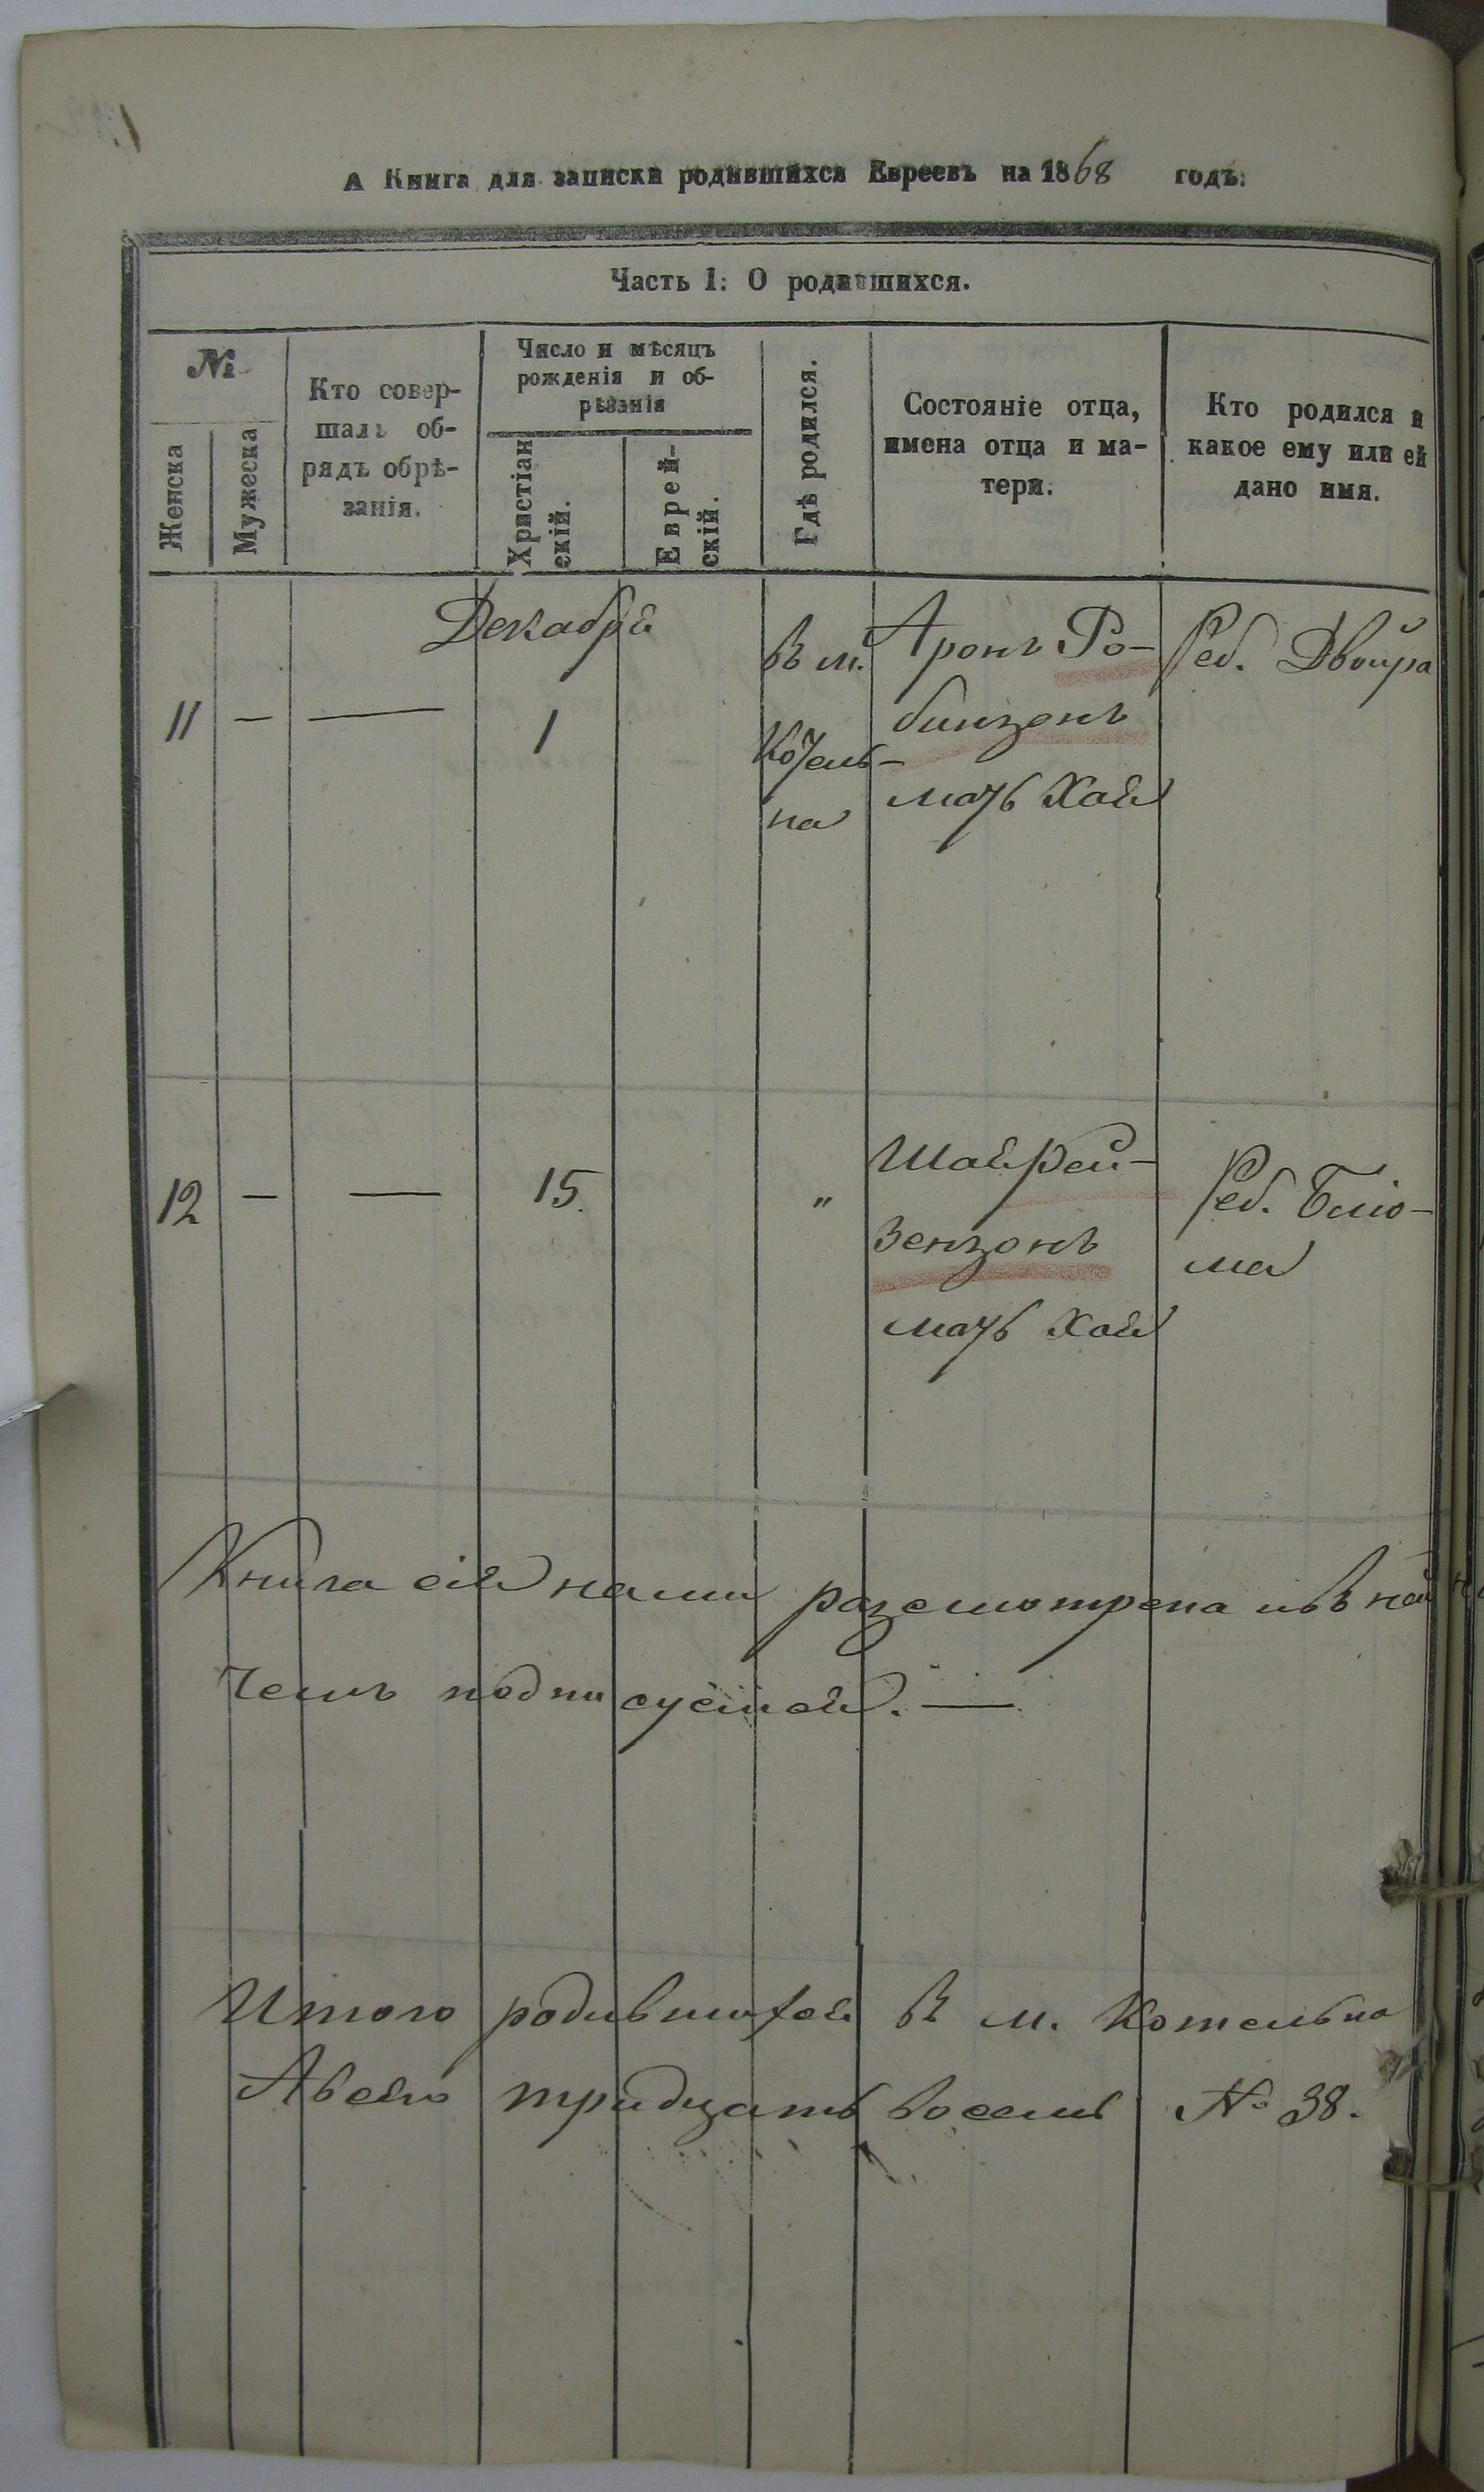 А Книга для записки родившихся Евреевъ на 1868 годъ:
Часть 1: О родившихся.
№
Женска
Мужеска
Кто совер-
шалъ об-
рядъ обрѣ-
занія.
Число и мѣсяцъ
рожденія и об-
рѣзанія
Христіан
скій.
Еврей-
скій.
Гдѣ родился.
Состояніе отца,
имена отца и ма-
тери.
Кто родился и
какое ему или ей
дано имя.
Декабря
11 — — 1
Въ м.
Котель-
на
Аронъ Ро-
бинзонъ
мать Хая
Реб. Двойра
12 — — 15. "
Шая Рей-
зензонъ
мать Хая
Реб. Блю-
ма
Книга сія нами разсмотрена и въ
чемъ подписуемся. —
Итого родившихся въ м. Котельна
тридцать восемь № 38.